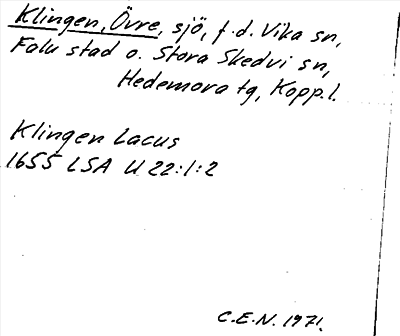 Klingen, Övre, sjö, f.d. Vika sn,
Falu stad o. Stora Skedvi sn,
Hedemora tg, Kopp.l.
Klingen Lacus
1655 LSA U 22:1:2
C.E.N. 1971.